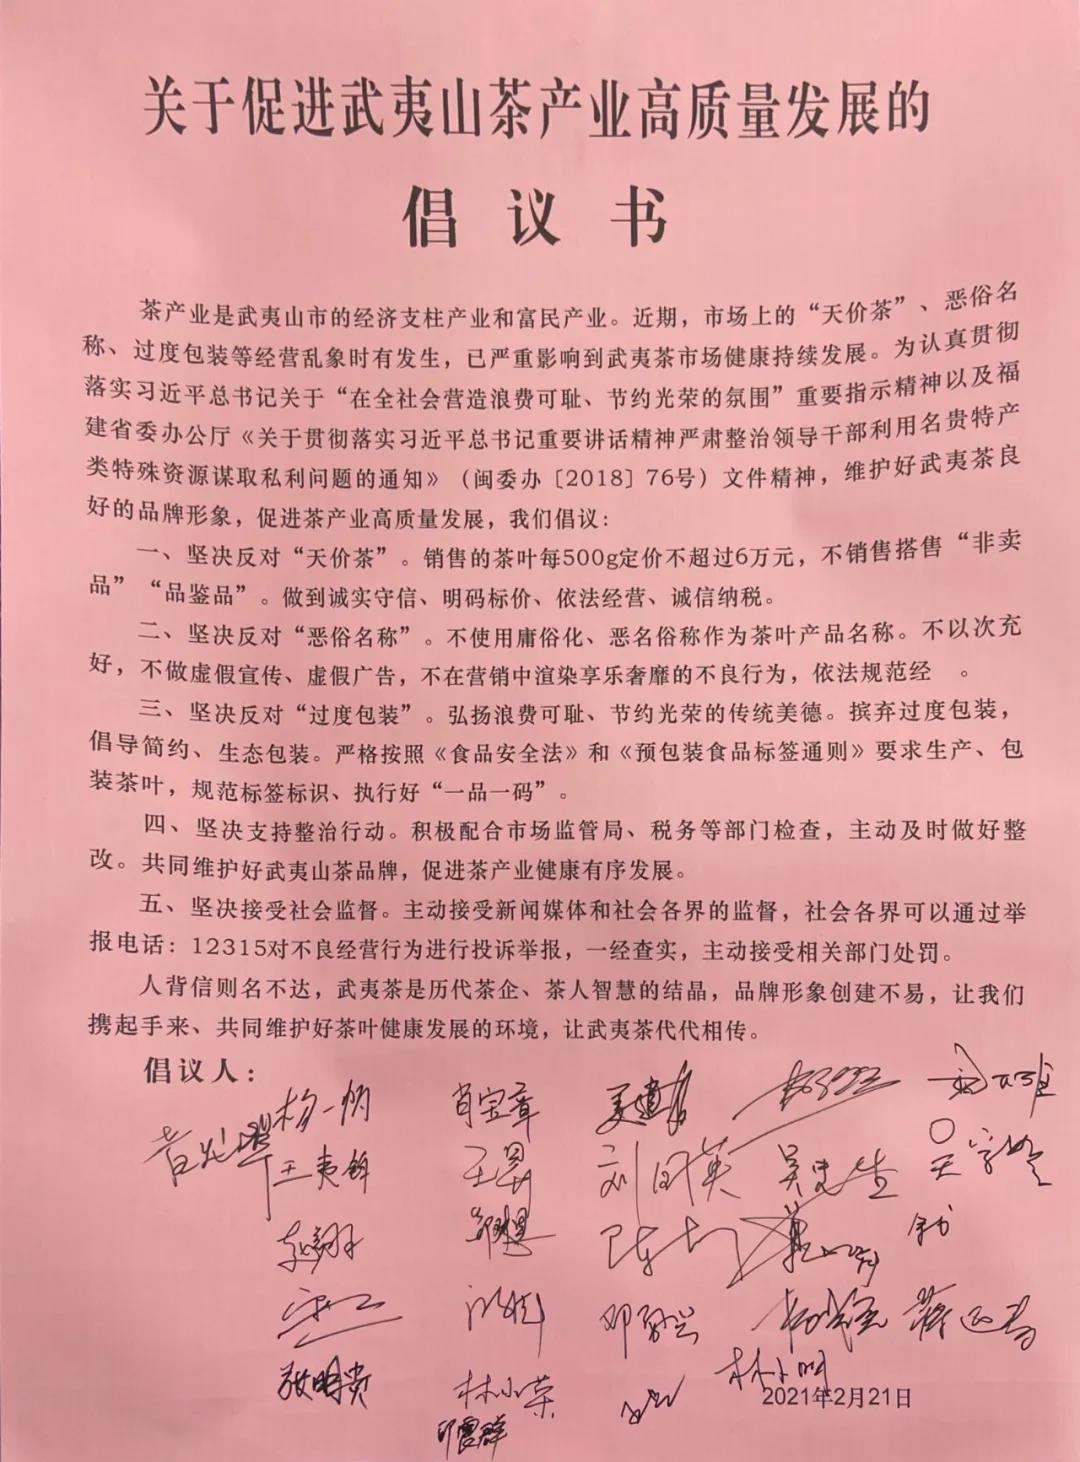 关于促进武夷山茶产业高质量发展的
倡议书
茶产业是武夷山市的经济支柱产业和富民产业。近期，市场上的“天价茶”、恶俗名
称、过度包装等经营乱象时有发生，已严重影响到武夷茶市场健康持续发展。为认真贯彻
落实习近平总书记关于“在全社会营造浪费可耻、节约光荣的氛围”重要指示精神以及福
建省委办公厅《关于贯彻落实习近平总书记重要讲话精神严肃整治领导干部利用名贵特产
类特殊资源谋取私利问题的通知》（闽委办〔2018〕76号）文件精神，维护好武夷茶良
好的品牌形象，促进茶产业高质量发展，我们倡议：
一、坚决反对“天价茶”。销售的茶叶每500g定价不超过6万元，不销售搭售“非卖
品”“品鉴品”。做到诚实守信、明码标价、依法经营、诚信纳税。
二、坚决反对“恶俗名称”。不使用庸俗化、恶名俗称作为茶叶产品名称。不以次充
好，不做虚假宣传、虚假广告，不在营销中渲染享乐奢靡的不良行为，依法规范经 。
三、坚决反对“过度包装”。弘扬浪费可耻、节约光荣的传统美德。摈弃过度包装，
倡导简约、生态包装。严格按照《食品安全法》和《预包装食品标签通则》要求生产、包
装茶叶，规范标签标识、执行好“一品一码”。
四、坚决支持整治行动。积极配合市场监管局、税务等部门检查，主动及时做好整
改。共同维护好武夷山茶品牌，促进茶产业健康有序发展。
五、坚决接受社会监督。主动接受新闻媒体和社会各界的监督，社会各界可以通过举
报电话：12315对不良经营行为进行投诉举报，一经查实，主动接受相关部门处罚。
人背信则名不达，武夷茶是历代茶企、茶人智慧的结晶，品牌形象创建不易，让我们
携起手来、共同维护好茶叶健康发展的环境，让武夷茶代代相传。
倡议人：
肖宝章
王夷 王昙 刘国英 吴先生
林小荣
2021年2月21日